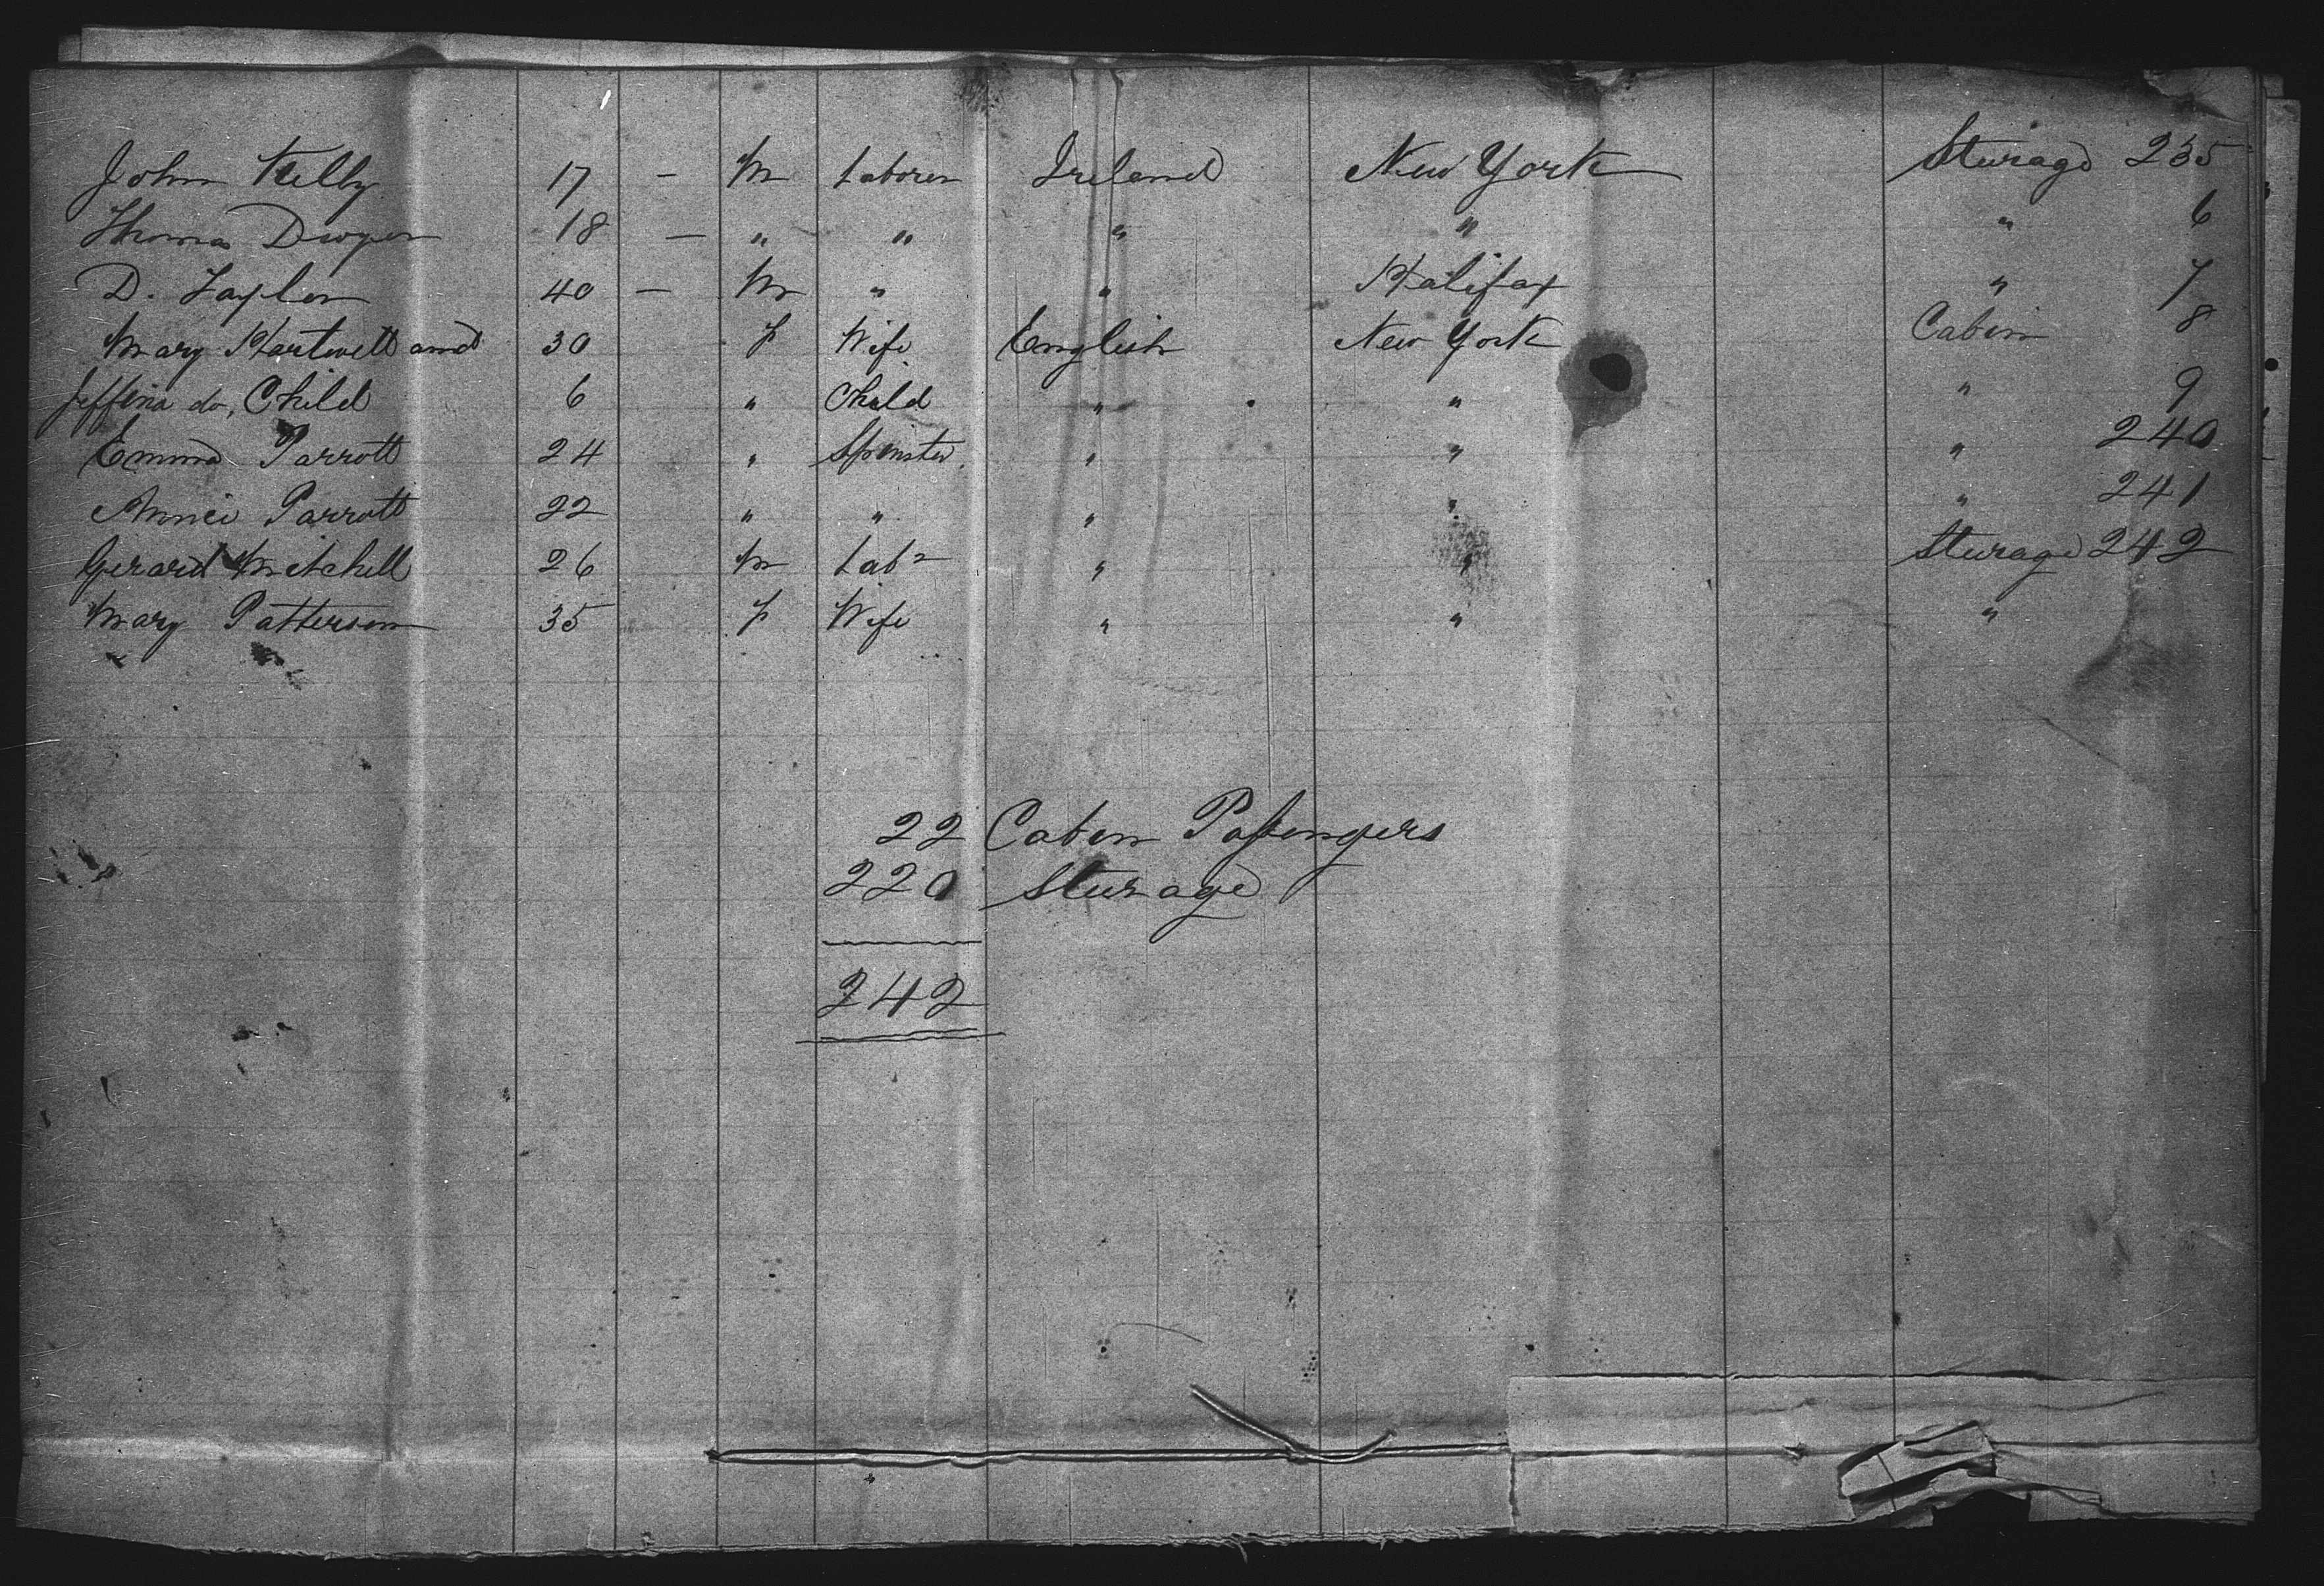 John Kelly 17 — M Laborer Ireland New York Sturage 235
Thomas Dwyer 18 — " " " " " 6
D. Taylor 40 — M " " Halifax " 7
Mary Hartwell and 30 F Wife English New York Cabin 8
do, Child 6 " Child " " " 9
Emma Parrott 24 " Spinster " " " 240
Annie Parrott 22 " " " " " 241
Gerard Mitchell 26 M Labr " " Sturage 242
Mary Patterson 35 F Wife " " "
22 Cabin Passengers
220 Sturage
242